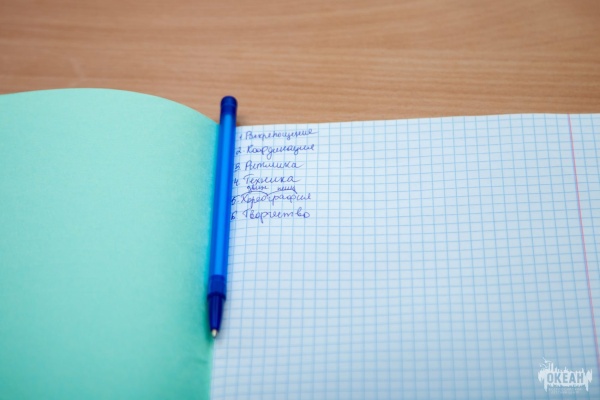 1. Раскрепощение
2. Координация
3. Ритмика
4. Техника
движ. пиш
5. Хореография
6. Творчество
ОКЕАН